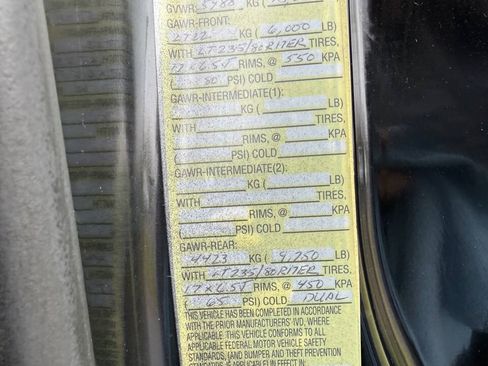 GVWR:
GAWR-FRONT:
2722 KG ( 6,000 LB)
WITH LT235/80R17ER TIRES,
17 X 6.5J RIMS, @ 550 KPA
( 80 PSI) COLD
GAWR-INTERMEDIATE(1):
KG ( LB)
WITH TIRES,
RIMS, @ KPA
( PSI) COLD
GAWR-INTERMEDIATE(2):
KG ( LB)
WITH TIRES,
RIMS, @ KPA
( PSI) COLD
GAWR-REAR:
4423 KG ( 9,750 LB)
WITH LT235/80R17ER TIRES,
17 X 6.5J RIMS, @ 450 KPA
( 65 PSI) COLD DUAL
THIS VEHICLE HAS BEEN COMPLETED IN ACCORDANCE
WITH THE PRIOR MANUFACTURERS' IVD, WHERE
APPLICABLE. THIS VEHICLE CONFORMS TO ALL
APPLICABLE FEDERAL MOTOR VEHICLE SAFETY
STANDARDS, (AND BUMPER AND THEFT PREVENTION
STANDARDS IF APPLICABLE) IN EFFECT IN